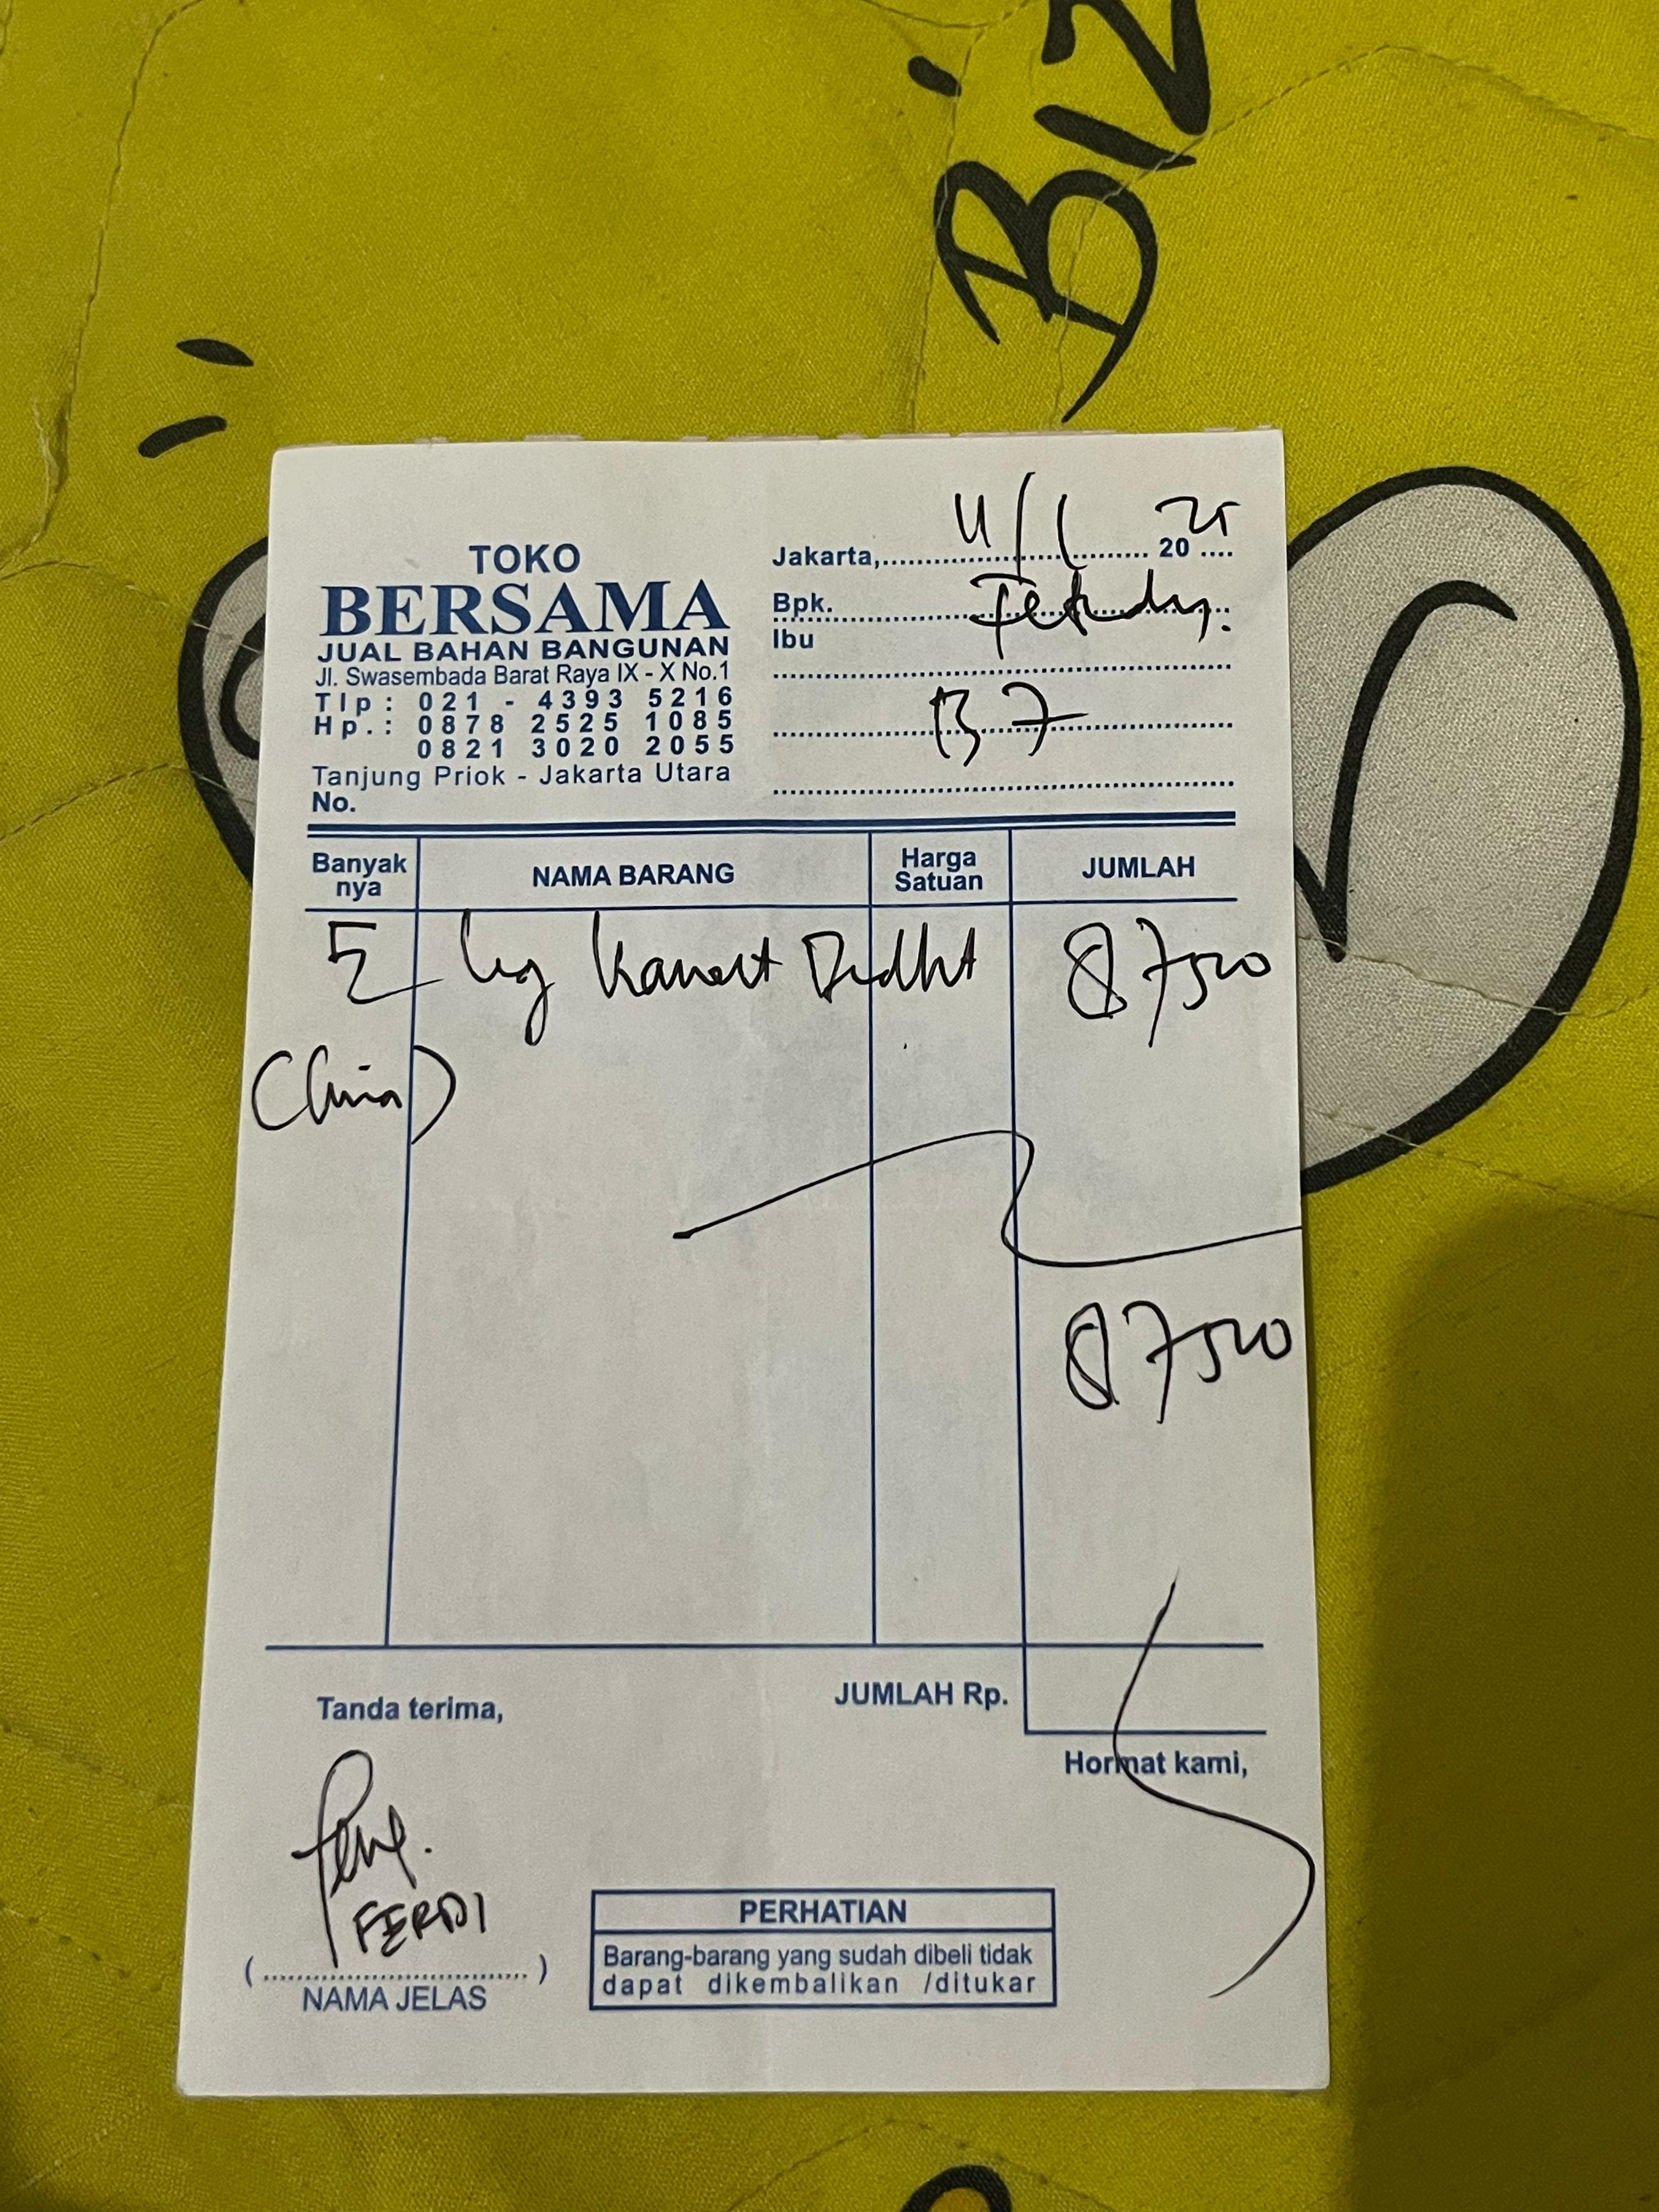 BIZ
TOKO
BERSAMA
JUAL BAHAN BANGUNAN
Jl. Swasembada Barat Raya IX - X No.1
Tlp : 021 - 4393 5216
Hp. : 0878 2525 1085
0821 3020 2055
Tanjung Priok - Jakarta Utara
No.
Jakarta, 20 25
Bpk.
Ibu
B 7
Banyak nya NAMA BARANG Harga Satuan JUMLAH
5 kg 87500
(China)
87500
JUMLAH Rp.
Tanda terima,
Hormat kami,
FERDI
( )
NAMA JELAS
PERHATIAN
Barang-barang yang sudah dibeli tidak
dapat dikembalikan /ditukar